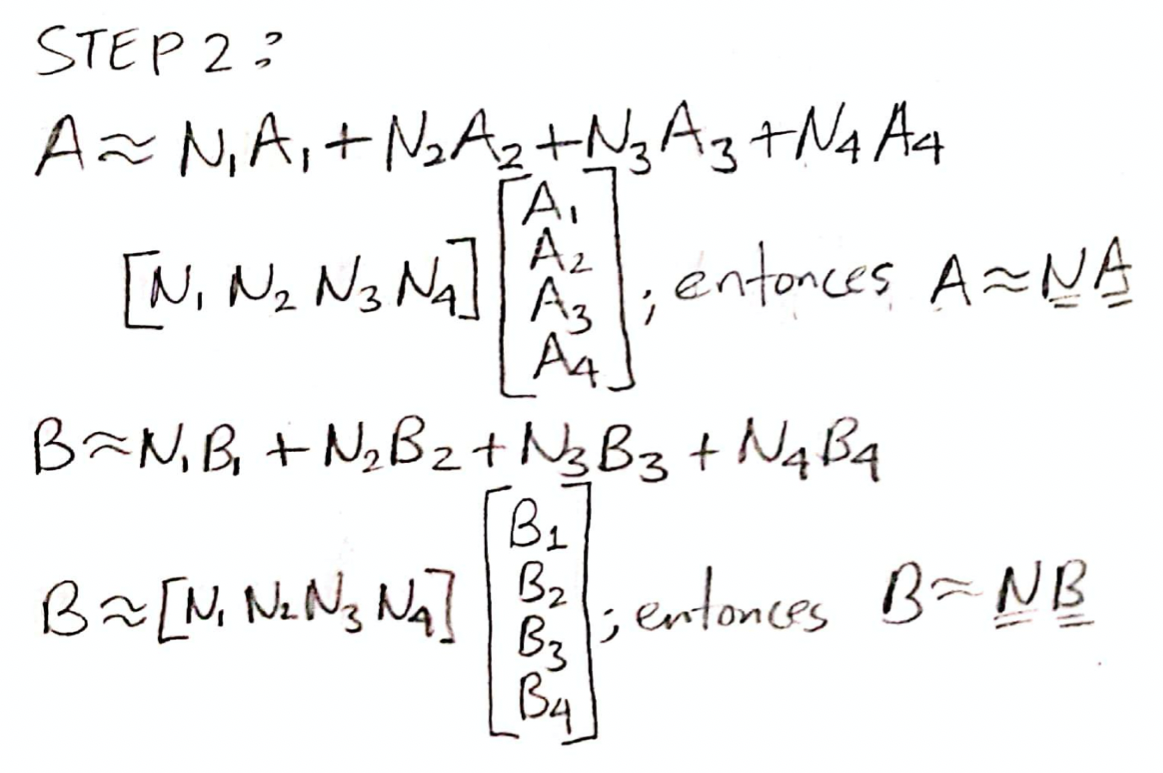 STEP 2:
A ≈ N₁A₁ + N₂A₂ + N₃A₃ + N₄A₄
[N₁ N₂ N₃ N₄] [A₁ A₂ A₃ A₄] ; entonces A ≈ N̳ A̳
B ≈ N₁B₁ + N₂B₂ + N₃B₃ + N₄B₄
B ≈ [N₁ N₂ N₃ N₄] [B₁ B₂ B₃ B₄] ; entonces B ≈ N̳ B̳